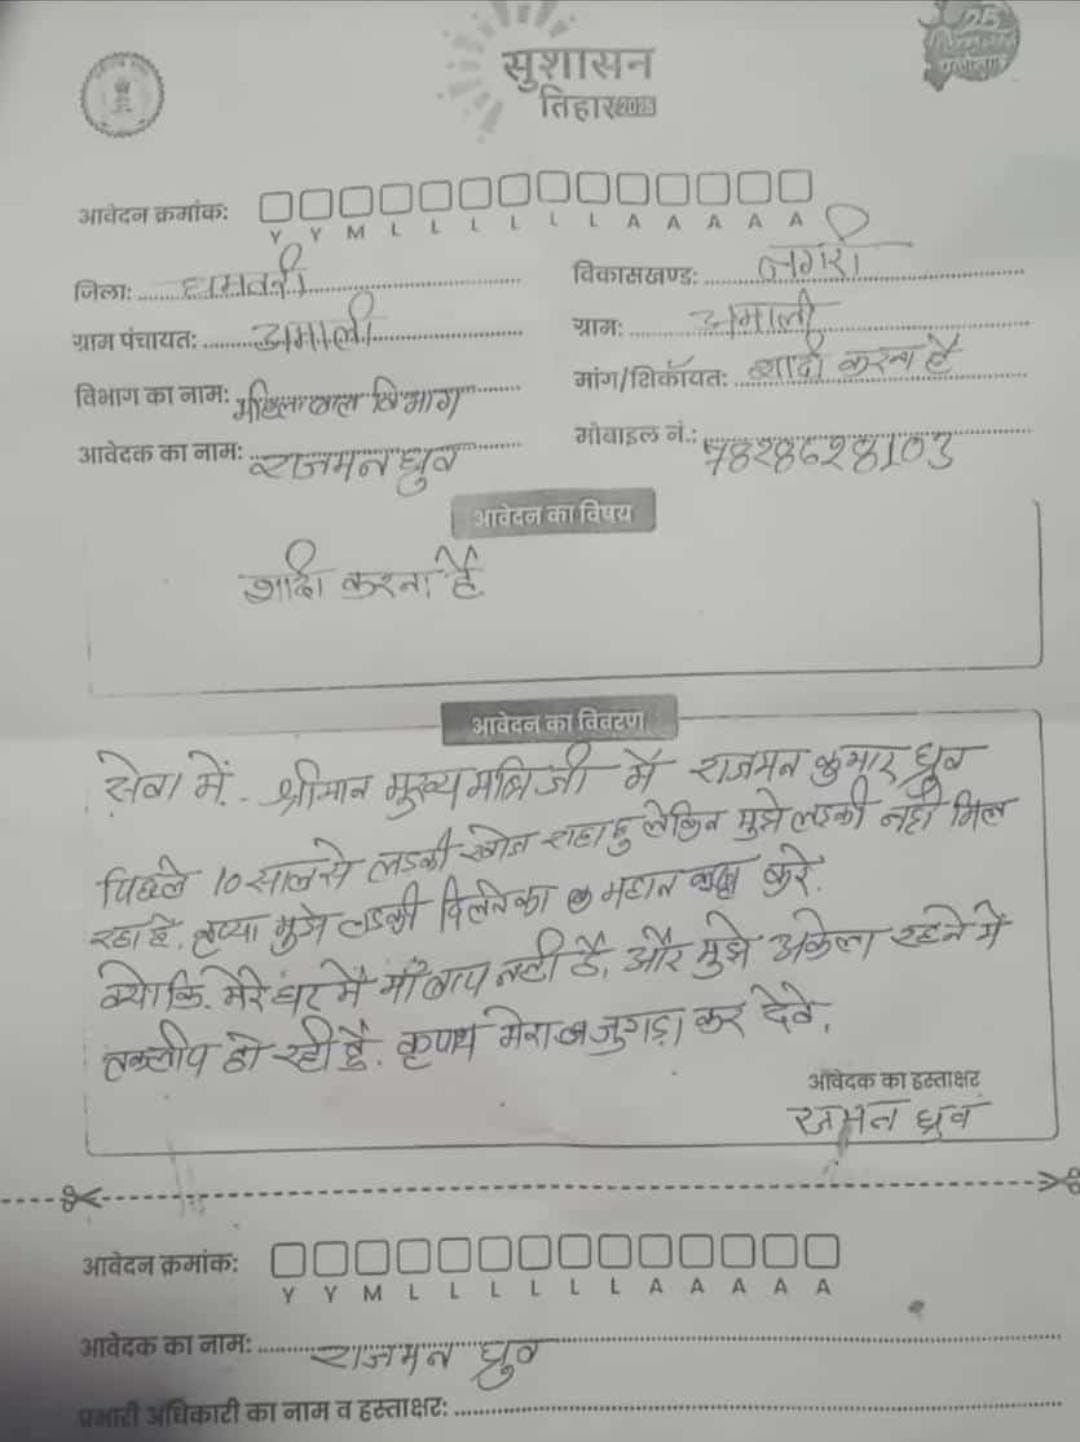 सुशासन
तिहार 2025
आवेदन क्रमांक:
Y Y M L L L L L L A A A A A
जिला: धमतरी
विकासखण्ड: नगरी
ग्राम पंचायत: अमाली
ग्राम: अमाली
विभाग का नाम: महिला बाल विभाग
मांग/शिकायत: शादी करना है
आवेदक का नाम: राजमन ध्रुव
मोबाइल नं.:
आवेदन का विषय
शादी करना है
आवेदन का विवरण
सेवा में.- श्रीमान मुख्यमंत्रि जी मैं राजमन कुमार ध्रुव
पिछले 10 साल से लडकी खोज राहा हु लेकिन मुझे लडकी नही मिल
रहा है. कृप्या मुझे लडकी दिलनेका महान करे.
क्योकि. मेरे घर में माँ बाप नही है, और मुझे अकेला रहने में
तकलीप हो रही है. कृपया मेरा जुगाड़ कर देवे.
आवेदक का हस्ताक्षर
राजमन ध्रुव
आवेदन क्रमांक:
Y Y M L L L L L L A A A A A
आवेदक का नाम: राजमन ध्रुव
प्रभारी अधिकारी का नाम व हस्ताक्षर: